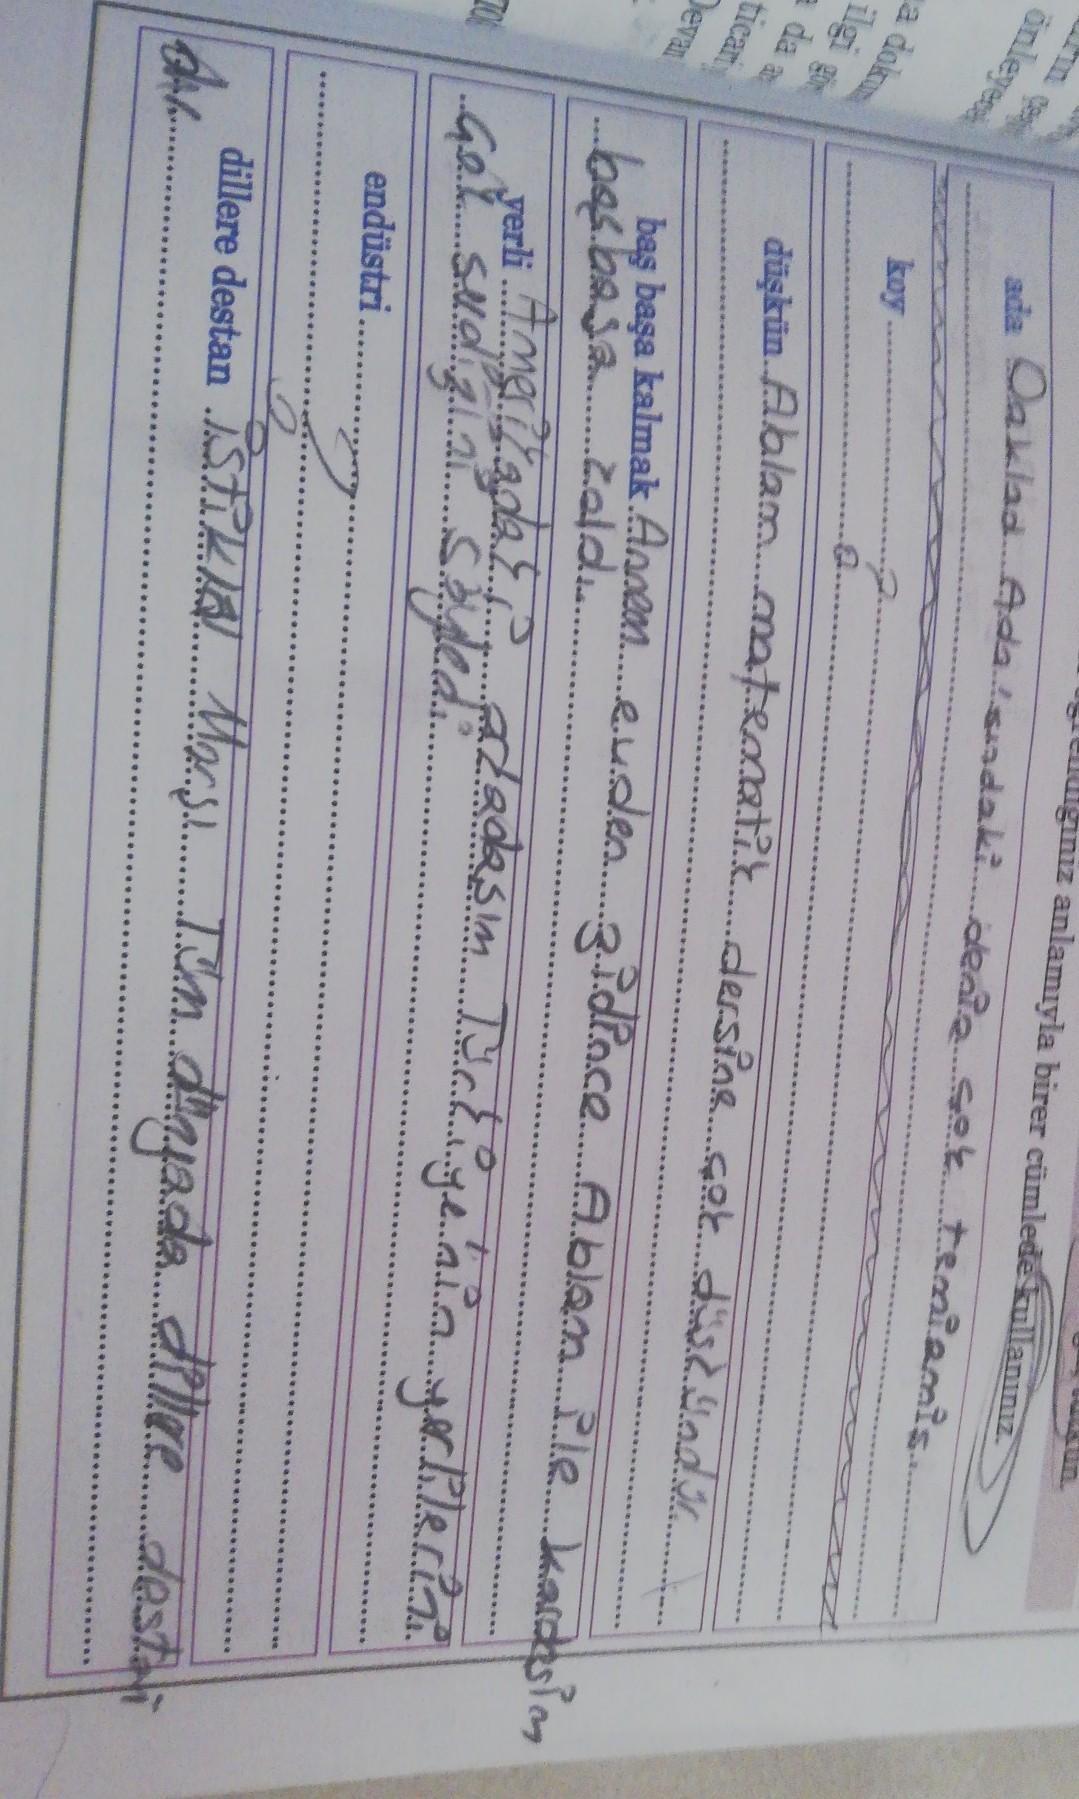 birer cümlede kullanınız.
anlamıyla
ada Oaklad Ada'sındaki deniz çok temizmiş.
koy ?
düşkün Ablam matematik dersine çok düşkündür.
baş başa kalmak Annem evden gidince Ablam ile kardeşim
başbaşa kaldı.
yerli Amerikadaki arkadaşım Türkiye'nin yerlilerini
çok sevdiğini söyledi.
endüstri ?
dillere destan İstiklal Marşı Tüm dünyada dillere destan
dır.